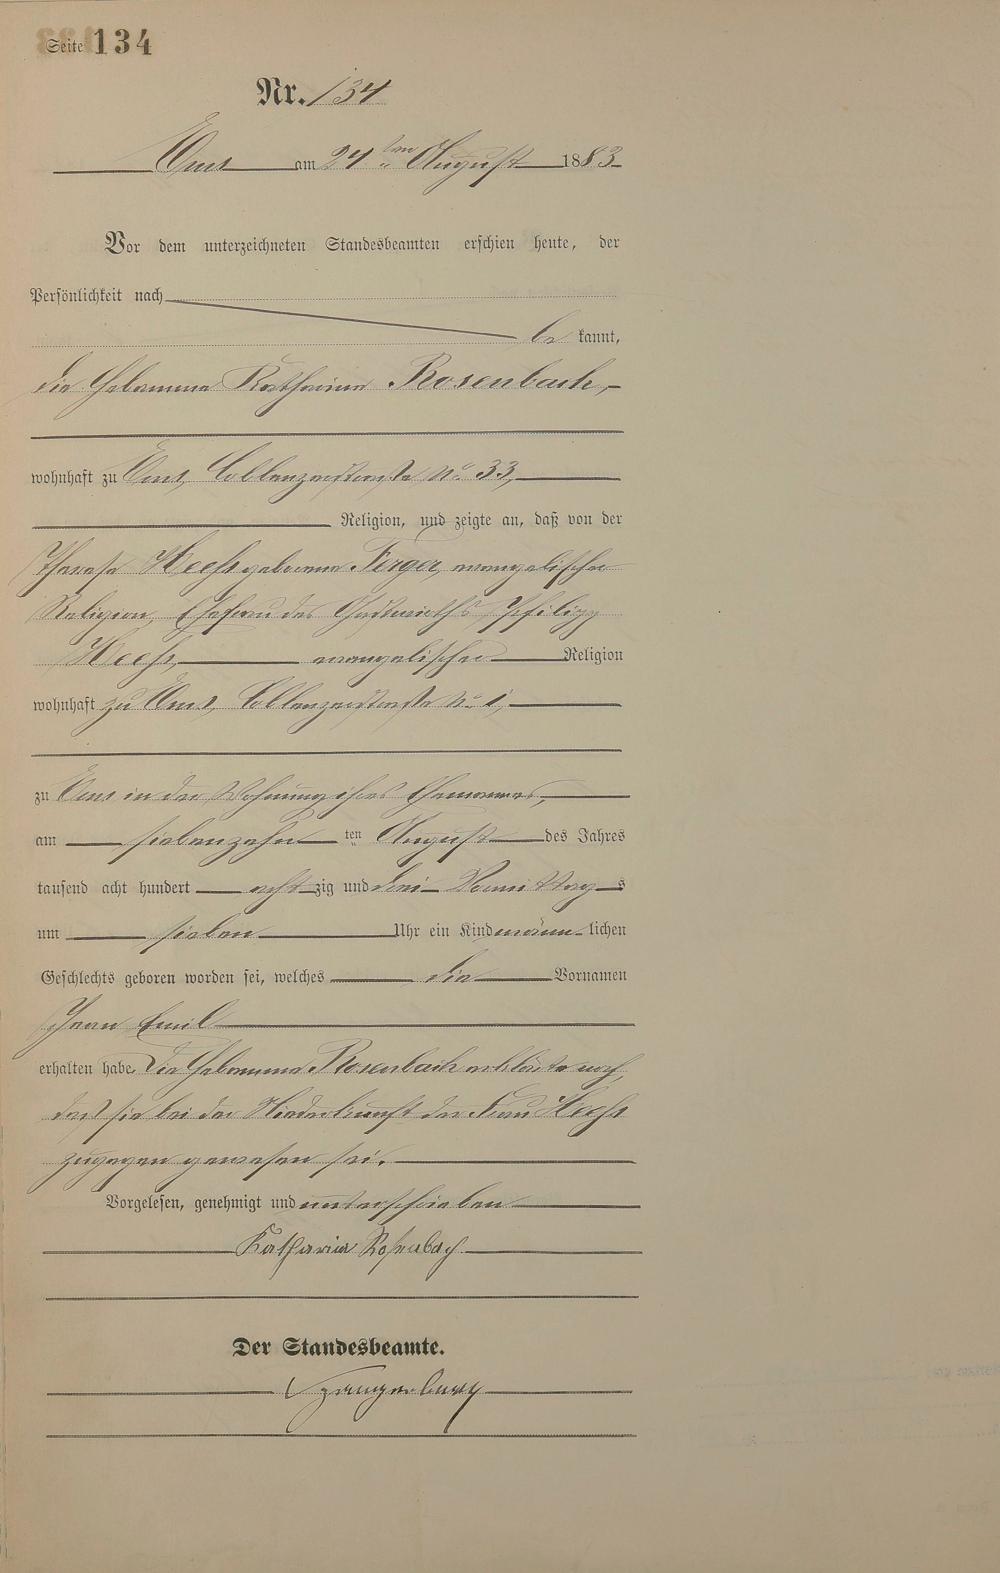 Seite 134
Nr. 134
Ems am 24ten August 1883
Vor dem unterzeichneten Standesbeamten erschien heute, der
Persönlichkeit nach
be kannt,
die Hebamme Katharina Rosenbach,
wohnhaft zu Ems, Coblenzerstraße No. 33,
Religion, und zeigte an, daß von der
Therese Heehs geborene Ferger, evangelischer
Religion, Ehefrau des Gastwirths Philipp
Heehs, evangelischer Religion
wohnhaft zu Ems, Coblenzerstraße No. 1,
zu Ems in der Wohnung ihres Ehemannes,
am siebenzehn ten August des Jahres
tausend acht hundert acht zig und drei Vormittag s
um sieben Uhr ein Kind männ lichen
Geschlechts geboren worden sei, welches die Vornamen
Jean Emil
erhalten habe. Die Hebamme Rosenbach erklärte noch,
daß sie bei der Niederkunft der Frau Heehs
zugegen gewesen sei.
Vorgelesen, genehmigt und unterschrieben
Katharina Rosenbach
Der Standesbeamte.